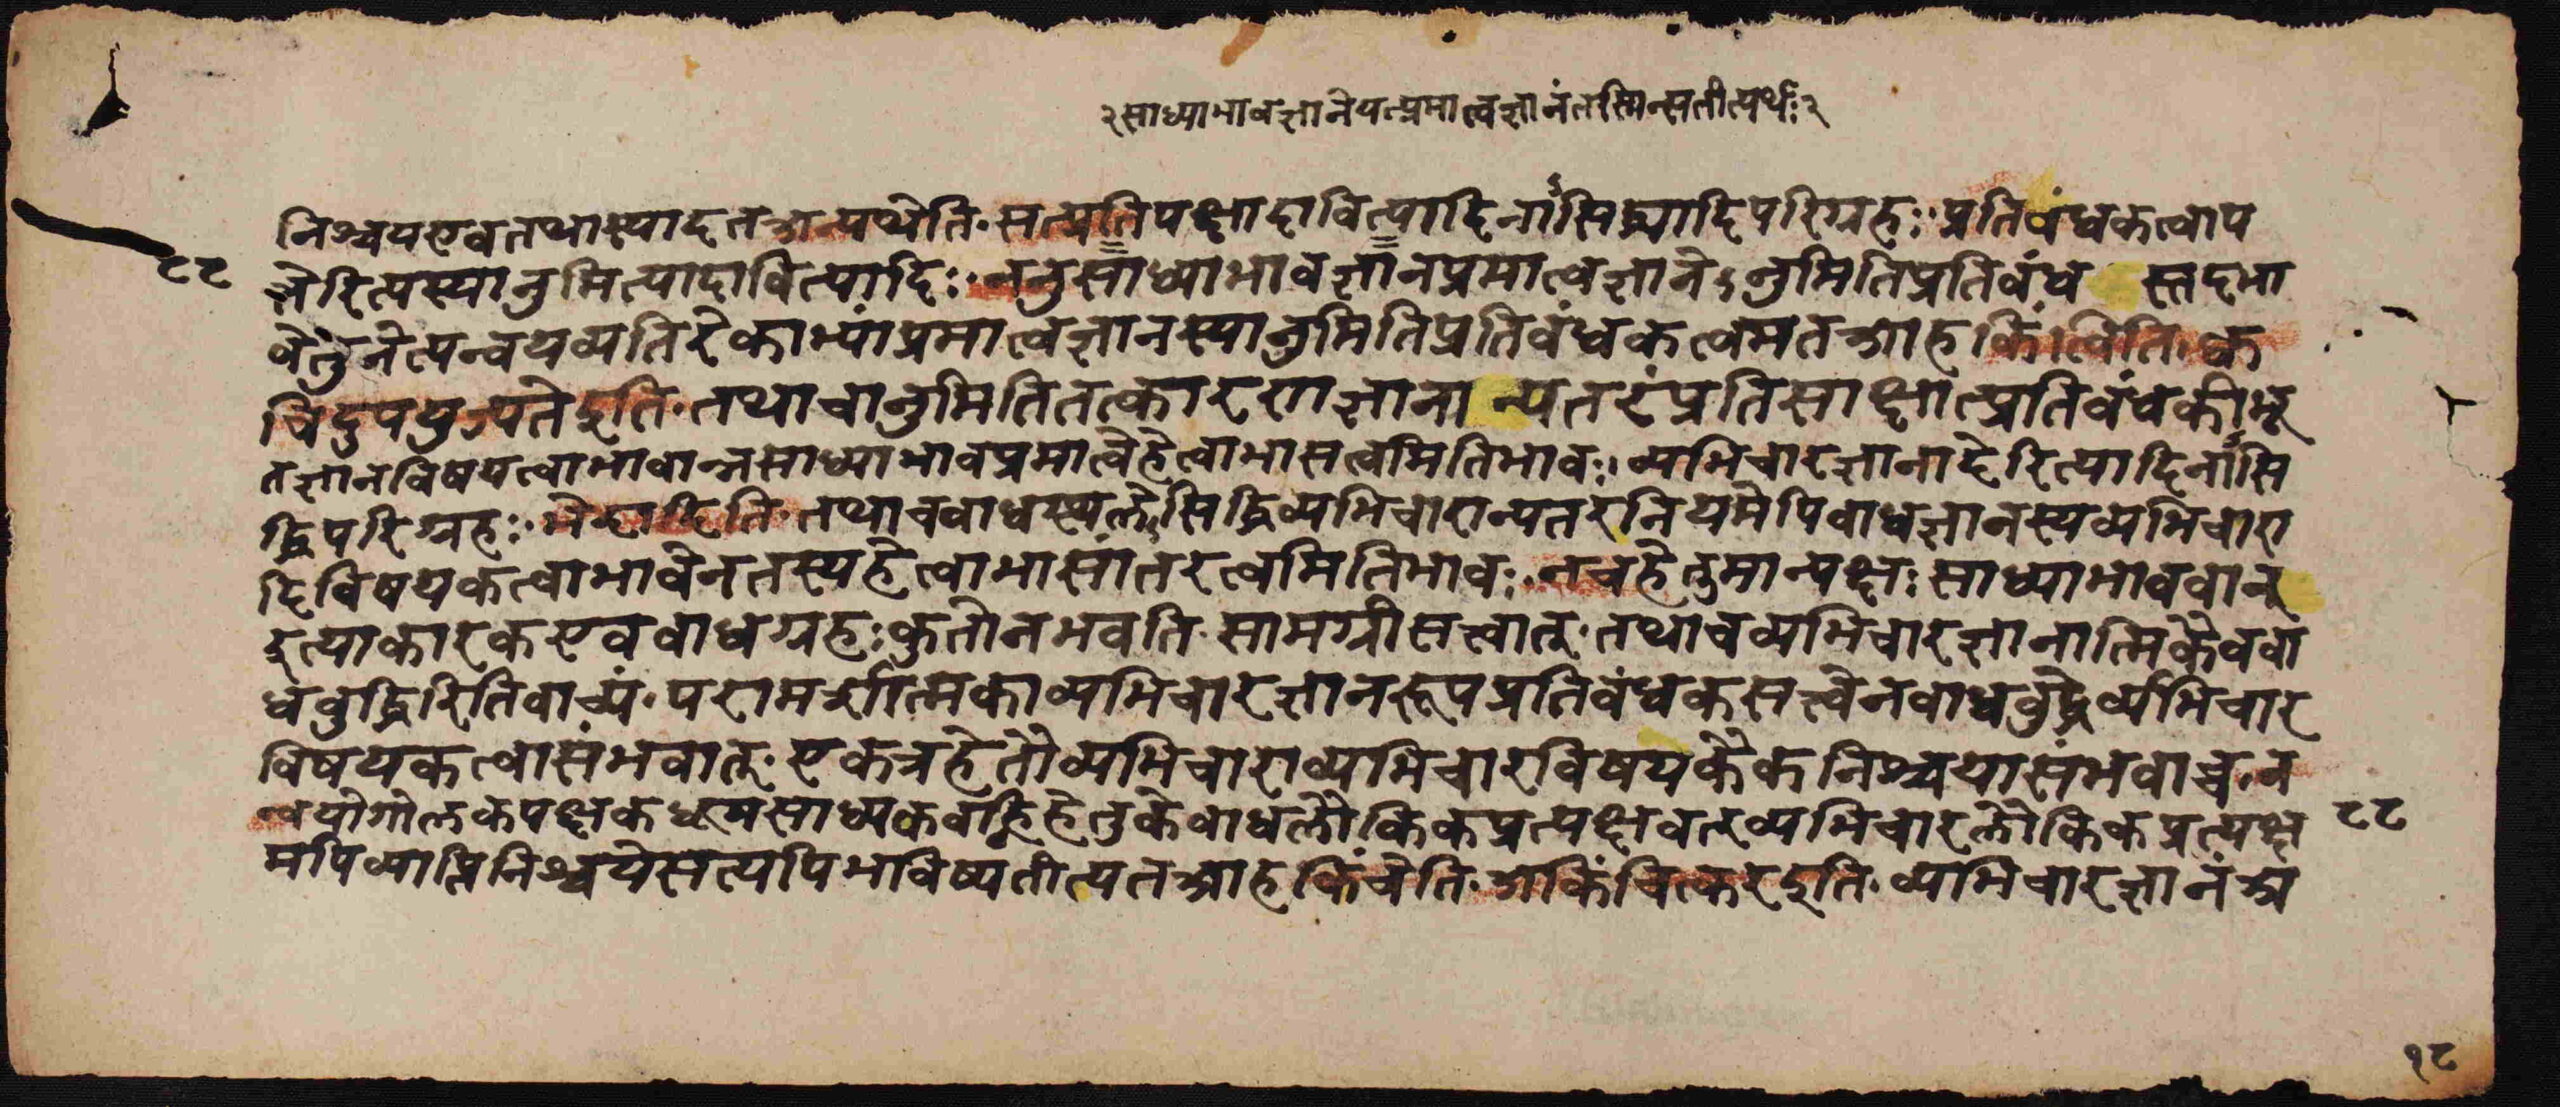 २साध्याभावज्ञानेयत्प्रमात्वज्ञानंतस्मिन्सतीत्यर्थः२
निश्चयएवतथास्यादतआन्यथेति॰सत्प्रतिपक्षादावित्यादिनाऽसिद्ध्यादिपरिग्रहः॰प्रतिवंधकत्वाप
८८
त्तेरित्यस्यानुमित्यादावित्यादिः॰ननुसाध्याभावज्ञानप्रमात्वज्ञानेऽनुमितिप्रतिवंध स्तदभा
वेतुनेत्यन्वयव्यतिरेकाभ्यांप्रमात्वज्ञानस्यानुमितिप्रतिवंधकत्वमतआहकिंत्विति॰क्व
चिदुपयुज्यतेइति॰तथाचानुमितितत्कारणज्ञाना न्यतरंप्रतिसाक्षात्प्रतिवंधकीभू
तज्ञानविषयत्वाभावान्नसाध्याभावप्रमात्वेहेत्वाभासत्वमितिभावः॰व्यभिचारज्ञानादेरित्यादिनाऽसि
द्धिपरिग्रहः॰भेदादिति॰तथाचवाधस्थलेऽसिद्धिव्यभिचारान्यतरनियमेपिवाधज्ञानस्यव्यभिचारा
दिविषयकत्वाभावेनतस्यहेत्वाभासांतरत्वमितिभावः॰नचहेतुमान्पक्षःसाध्याभाववान्
इत्याकारकएववाधग्रहःकुतोनभवति॰सामग्रीसत्त्वात्॰तथाचव्यभिचारज्ञानात्मिकैववा
धवुद्धिरितिवाच्यं॰परामर्शात्मकाव्यभिचारज्ञानरूपप्रतिवंधकसत्त्वेनवाधवुद्धेर्व्यभिचार
विषयकत्वासंभवात्॰एकत्रहेतौव्यभिचाराव्यभिचारविषयकैकनिश्चयासंभवाच्च॰न
न्वयोगोलकपक्षकधूमसाध्यकवह्निहेतुकेवाधलौकिकप्रत्यक्षवत्व्यभिचारलौकिकप्रत्यक्ष
८८
मपिव्याप्तिनिश्चयेसत्यपिभविष्यतीत्यतआहकिंचेति॰अकिंचित्करइति॰व्यभिचारज्ञानंअ
१८